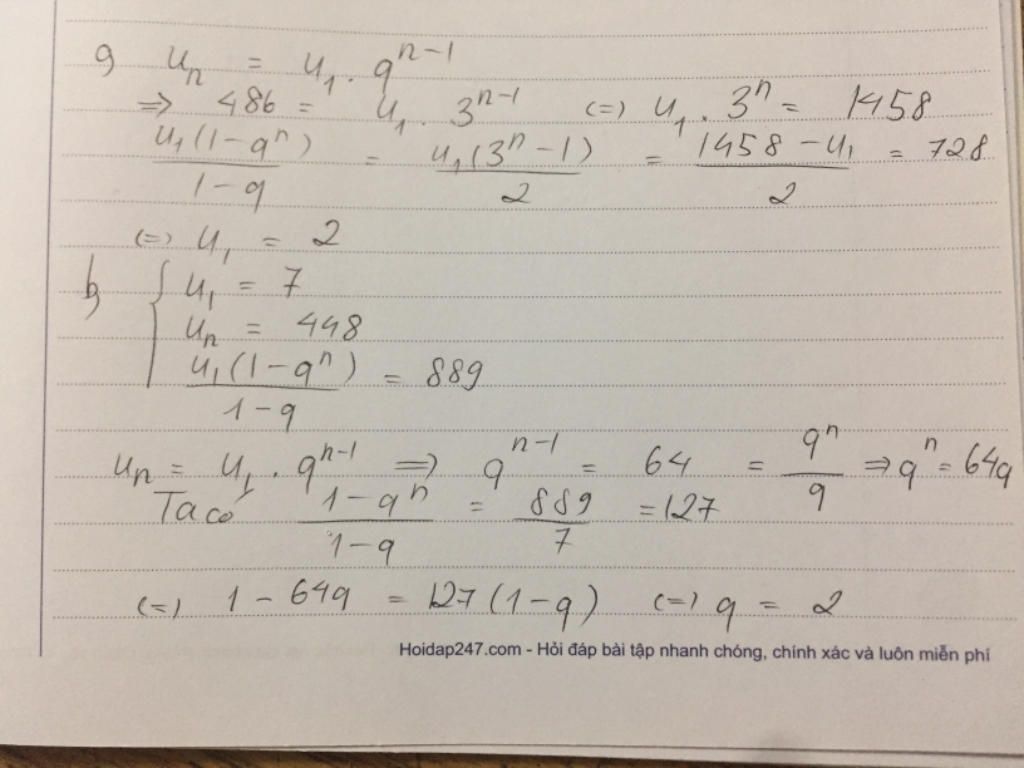 a) uₙ = u₁ . qⁿ⁻¹
=> 486 = u₁ . 3ⁿ⁻¹ (=) u₁ . 3ⁿ = 1458
u₁(1-qⁿ)/1-q = u₁(3ⁿ-1)/2 = 1458-u₁/2 = 728
(=) u₁ = 2
b) { u₁ = 7
uₙ = 448
u₁(1-qⁿ)/1-q = 889
uₙ = u₁ . qⁿ⁻¹ => qⁿ⁻¹ = 64 = qⁿ/q => qⁿ = 64q
Ta có 1-qⁿ/1-q = 889/7 = 127
(=) 1 - 64q = 127(1-q) (=) q = 2
Hoidap247.com - Hỏi đáp bài tập nhanh chóng, chính xác và luôn miễn phí